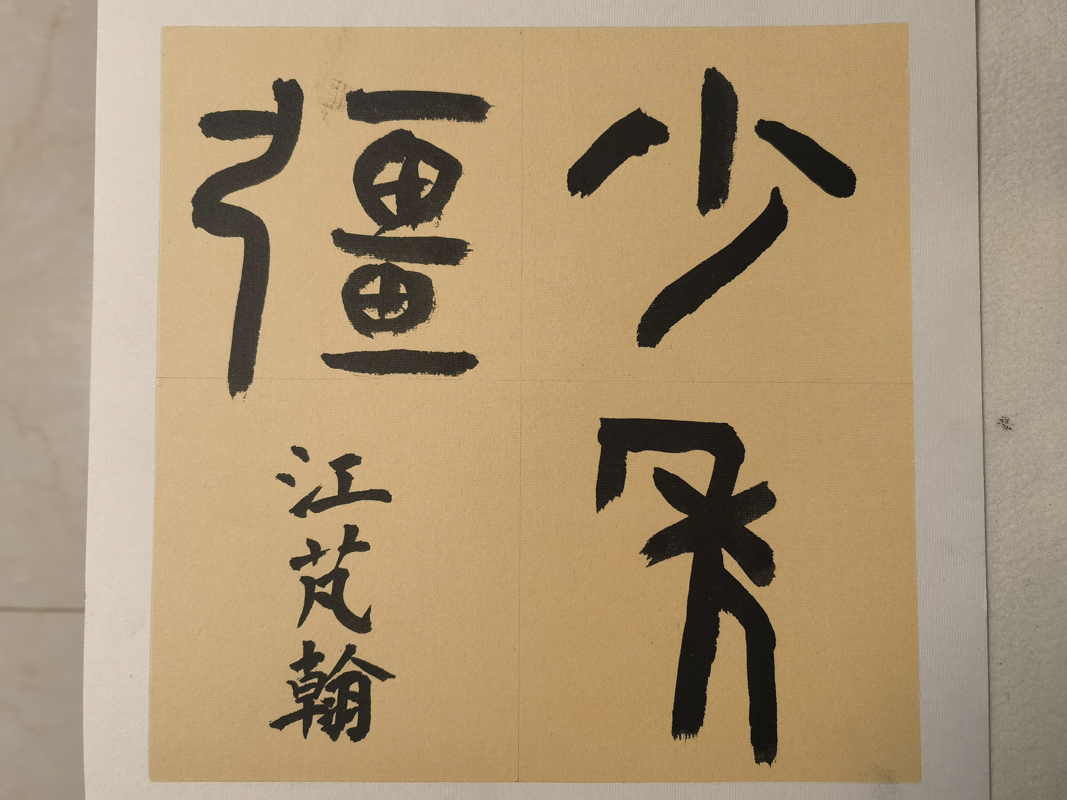 少年
彊
江芃翰